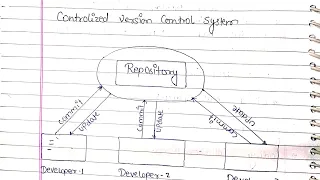 Controlized version Control System
Repository
commit
update
commit
update
update
commit
Developer-1
Developer-2